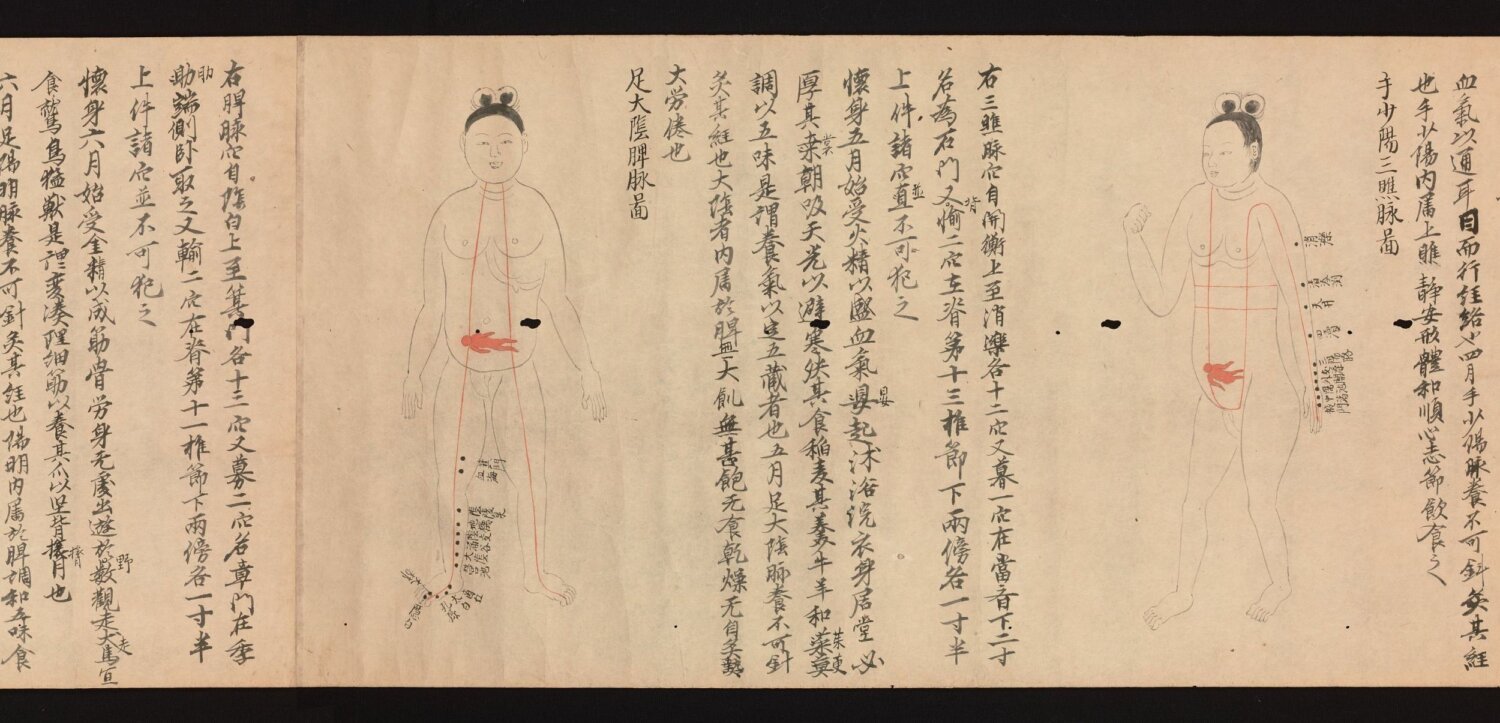 血氣以通耳目而行経絡也四月手少陽脉養不可針灸其経
也手少陽内属上瞧静安形體和順心志節飲食之
手少陽三瞧脉啚
消濼
天井
右三瞧脉穴自開衝上至消濼各十二穴又募一穴在當音下二寸
名為石門又背愉二穴在脊第十三椎節下兩傍各一寸半
上件諸穴並不可犯之
懐身五月始受火精以盛血氣晏起沐浴浣衣身居堂必
厚其裳朝吸天光以避寒殃其食稻麦其羹牛羊和茱萸
調以五味是謂養氣以定五藏者也五月足大陰脉養不可針
灸其経也大陰者内属於脾無大飢無甚飽无食乾燥无自炙熱
大労倦也
足大陰脾脉啚
箕門
血海
右脾脉穴自隂白上至箕門各十三穴又募二穴名章門在季
肋端側卧取之又輸二穴在脊第十一椎節下兩傍各一寸半
上件諸穴並不可犯之
懐身六月始受金精以成筋骨労身无處出遊於野數觀走犬馬宜
食鷙鳥猛獣是謂変湊理細筋以養其爪以堅背膂也
六月足陽明脉養不可針灸其経也陽明内属於脾調和五味食